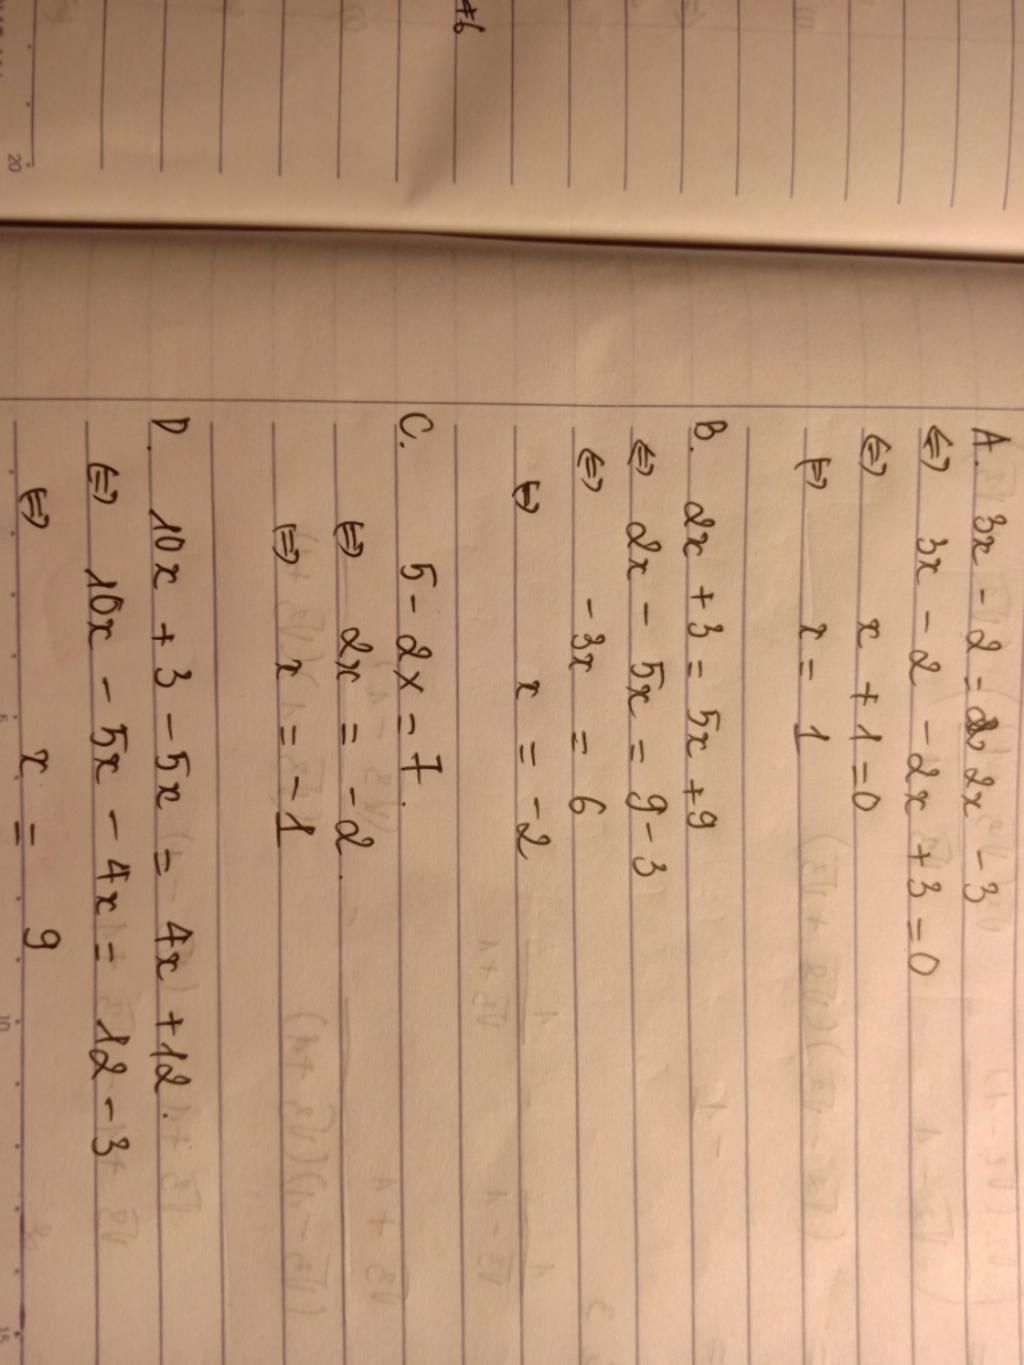 A. 3x - 2 = 2x - 3
⇔ 3x - 2 - 2x + 3 = 0
⇔ x + 1 = 0
⇔ x = 1
B. 2x + 3 = 5x + 9
⇔ 2x - 5x = 9 - 3
⇔ - 3x = 6
⇔ x = - 2
C. 5 - 2x = 7.
⇔ 2x = - 2.
⇔ x = - 1
D. 10x + 3 - 5x = 4x + 12.
⇔ 10x - 5x - 4x = 12 - 3
⇔ x = 9